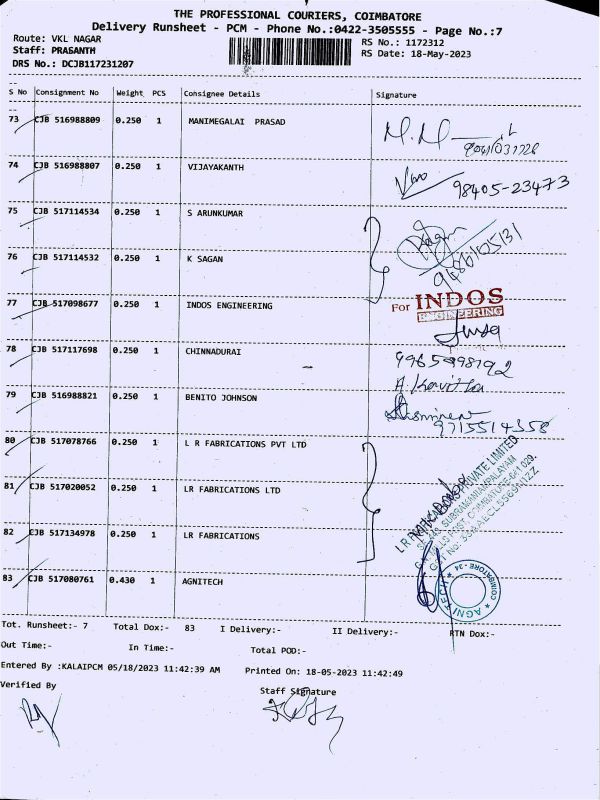 THE PROFESSIONAL COURIERS, COIMBATORE
Delivery Runsheet - PCM - Phone No.:0422-3505555 - Page No.:7
Route: VKL NAGAR
RS No.: 1172312
Staff: PRASANTH
RS Date: 18-May-2023
DRS No.: DCJB117231207
S No Consignment No Weight PCS Consignee Details Signature
73 CJB 516988809 0.250 1 MANIMEGALAI PRASAD
74 CJB 516988807 0.250 1 VIJAYAKANTH
98405-23473
75 CJB 517114534 0.250 1 S ARUNKUMAR
76 CJB 517114532 0.250 1 K SAGAN
77 CJB 517098677 0.250 1 INDOS ENGINEERING
For INDOS
ENGINEERING
78 CJB 517117698 0.250 1 CHINNADURAI
A. Kavitha
79 CJB 516988821 0.250 1 BENITO JOHNSON
9715514358
80 CJB 517078766 0.250 1 L R FABRICATIONS PVT LTD
81 CJB 517020052 0.250 1 LR FABRICATIONS LTD
82 CJB 517134978 0.250 1 LR FABRICATIONS
PRIVATE LIMITED
83 CJB 517080761 0.430 1 AGNITECH
AGNI TECH * COIMBATORE - 34 *
Tot. Runsheet:- 7 Total Dox:- 83 I Delivery:- II Delivery:- RTN Dox:-
Out Time:- In Time:- Total POD:-
Entered By :KALAIPCM 05/18/2023 11:42:39 AM Printed On: 18-05-2023 11:42:49
Verified By
Staff Signature